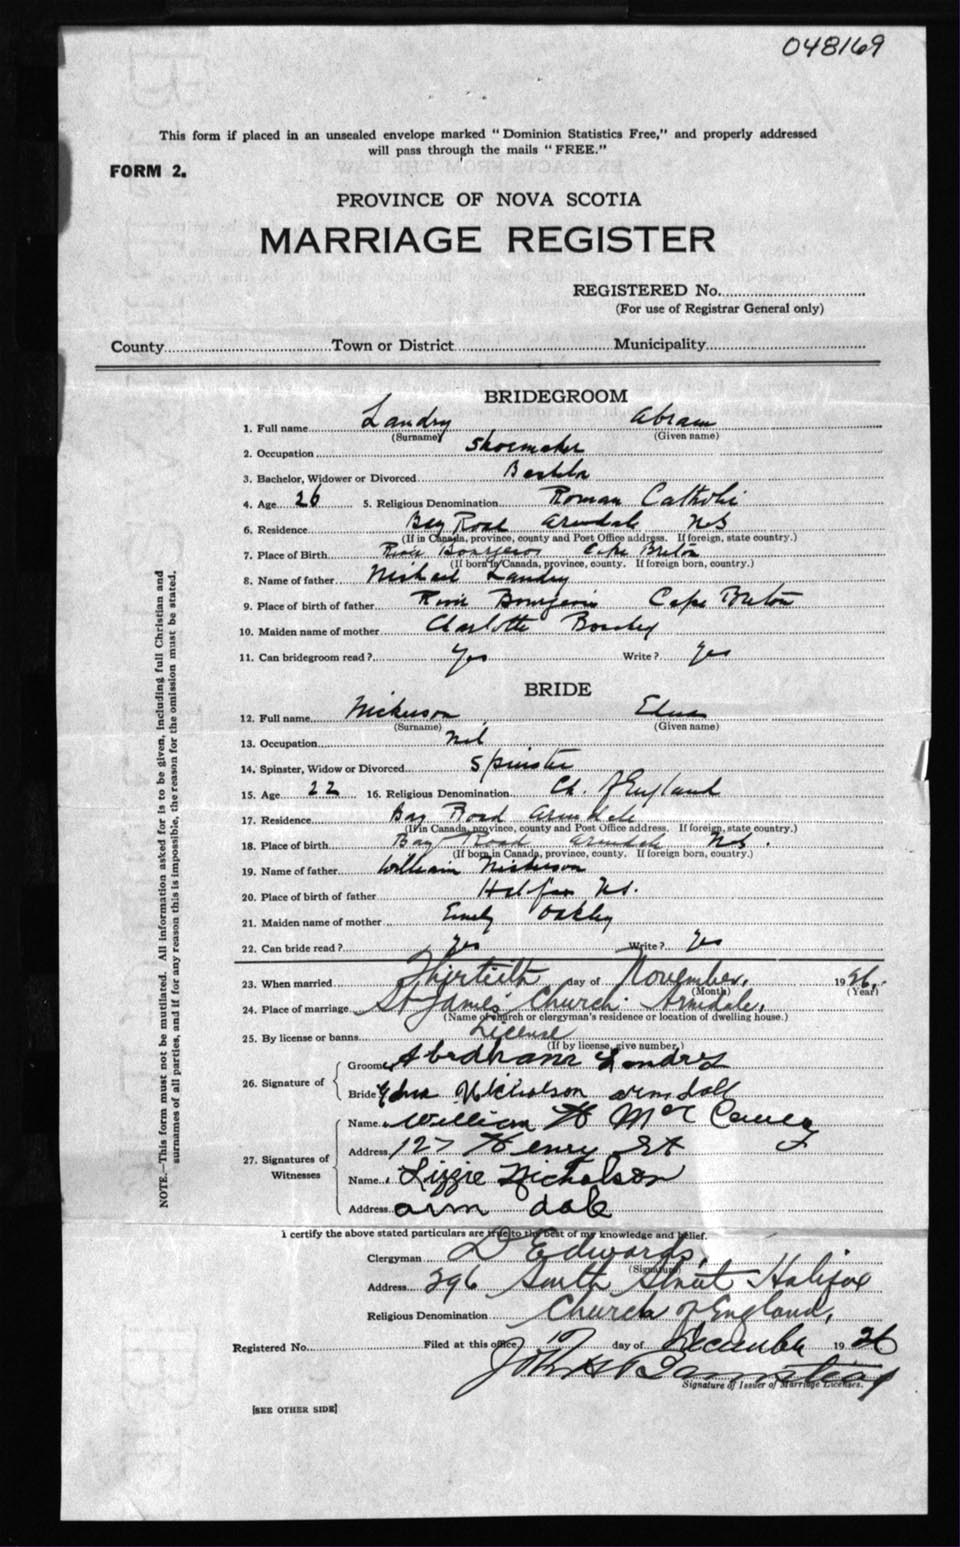 048169
This form if placed in an unsealed envelope marked "Dominion Statistics Free," and properly addressed
will pass through the mails "FREE."
FORM 2.
PROVINCE OF NOVA SCOTIA
MARRIAGE REGISTER
REGISTERED No.
(For use of Registrar General only)
County Town or District Municipality
BRIDEGROOM
1. Full name Landry Abram
(Surname) (Given name)
2. Occupation Shoemaker
3. Bachelor, Widower or Divorced Bachelor
4. Age 26 5. Religious Denomination Roman Catholic
6. Residence Bay Road Armdale N S
(If in Canada, province, county and Post Office address. If foreign, state country.)
7. Place of Birth River Bourgeois Cape Breton
(If born in Canada, province, county. If foreign born, country.)
8. Name of father Michael Landry
9. Place of birth of father River Bourgeois Cape Breton
10. Maiden name of mother Charlotte
11. Can bridegroom read? Yes Write? Yes
BRIDE
12. Full name Nickerson Edna
(Surname) (Given name)
13. Occupation Nil
14. Spinster, Widow or Divorced Spinster
15. Age 22 16. Religious Denomination Ch. of England
17. Residence Bay Road Armdale
(If in Canada, province, county and Post Office address. If foreign, state country.)
18. Place of birth Bay Road Armdale N S.
(If born in Canada, province, county. If foreign born, country.)
19. Name of father William Nickerson
20. Place of birth of father Halifax N S.
21. Maiden name of mother Emily Oakley
22. Can bride read? Yes Write? Yes
23. When married Thirtieth day of November, 1926.
(Month) (Year)
24. Place of marriage St James' Church. Armdale,
(Name of church or clergyman's residence or location of dwelling house.)
25. By license or banns License
(If by license, give number.)
26. Signature of
Groom Abrahame Landry
Bride Edna Nicholson arm dall
27. Signatures of Witnesses
Name William H
Address 127 Henry St
Name Lizzie Nicholson
Address arm dale
I certify the above stated particulars are true to the best of my knowledge and belief.
Clergyman D Edwards,
(Signature)
Address 296 South Street Halifax
Religious Denomination Church of England,
Registered No. Filed at this office 10 day of December 1926
John H Barnstead
Signature of Issuer of Marriage Licenses.
[SEE OTHER SIDE]
NOTE.—This form must not be mutilated. All information asked for is to be given, including full Christian and
surnames of all parties, and if for any reason this is impossible, the reason for the omission must be stated.